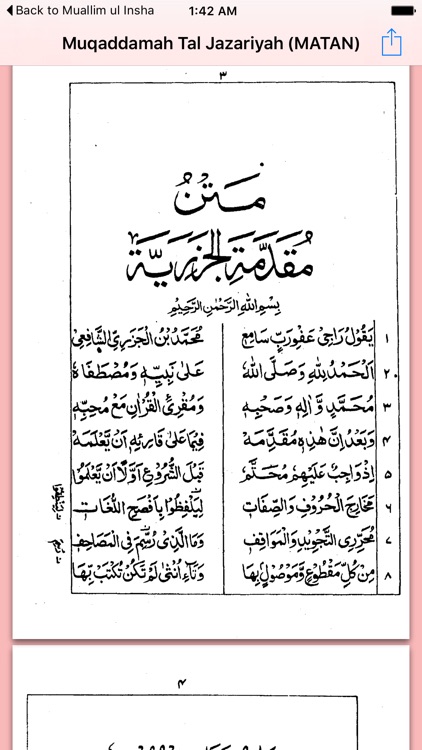 Back to Muallim ul Insha 1:42 AM
Muqaddamah Tal Jazariyah (MATAN)
٣
مَتْنُ
مُقَدِّمَةِ الْجَزَرِيَّةِ
بِسْمِ اللهِ الرَّحْمٰنِ الرَّحِيْمِ
١ يَقُوْلُ رَاجِيْ عَفْوِ رَبٍّ سَامِعٖ مُحَمَّدُ بْنُ الْجَزَرِيِّ الشَّافِعِيْ
٢ اَلْحَمْدُ لِلّٰهِ وَصَلَّى اللهُ عَلٰى نَبِيِّهٖ وَمُصْطَفَاهُ
٣ مُحَمَّدٍ وَّاٰلِهٖ وَصَحْبِهٖ وَمُقْرِئِ الْقُرْاٰنِ مَعْ مُحِبِّهٖ
٤ وَبَعْدُ اِنَّ هٰذِهٖ مُقَدِّمَهْ فِيْمَا عَلٰى قَارِئِهٖ اَنْ يَّعْلَمَهْ
٥ اِذْ وَاجِبٌ عَلَيْهِمْ مُحَتَّمٌ قَبْلَ الشُّرُوْعِ اَوَّلًا اَنْ يَّعْلَمُوْا
٦ مَخَارِجَ الْحُرُوْفِ وَالصِّفَاتِ لِيَلْفِظُوْا بِاَفْصَحِ اللُّغَاتِ
٧ مُحَرِّرِي التَّجْوِيْدِ وَالْمَوَاقِفِ وَمَا الَّذِيْ رُسِّمَ فِي الْمَصَاحِفِ
٨ مِنْ كُلِّ مَقْطُوْعٍ وَّمَوْصُوْلٍ بِهَا وَتَاءِ اُنْثٰى لَمْ تَكُنْ تُكْتَبْ بِهَا
٤